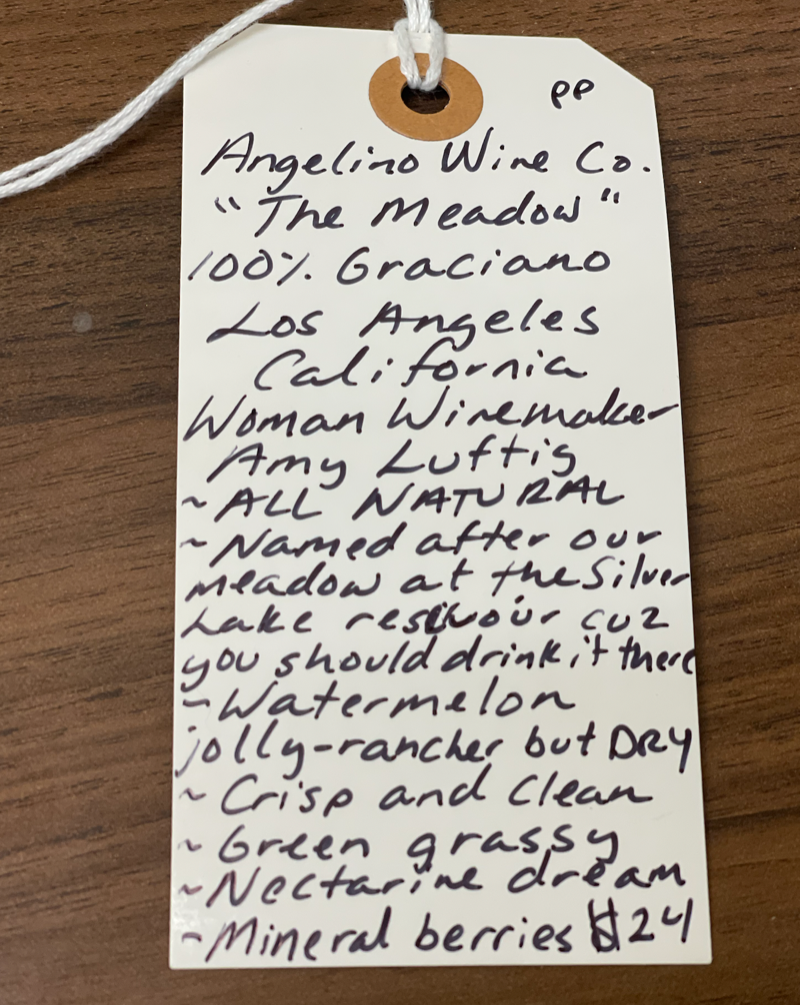 pp
Angelino Wine Co.
"The Meadow"
100% Graciano
Los Angeles
California
Woman Winemaker
Amy Luftig
~ ALL NATURAL
~ Named after our
meadow at the Silver
Lake resivour cuz
you should drink it there
~ Watermelon
jolly-rancher but DRY
~ Crisp and Clean
~ Green grassy
~ Nectarine dream
~ Mineral berries $24